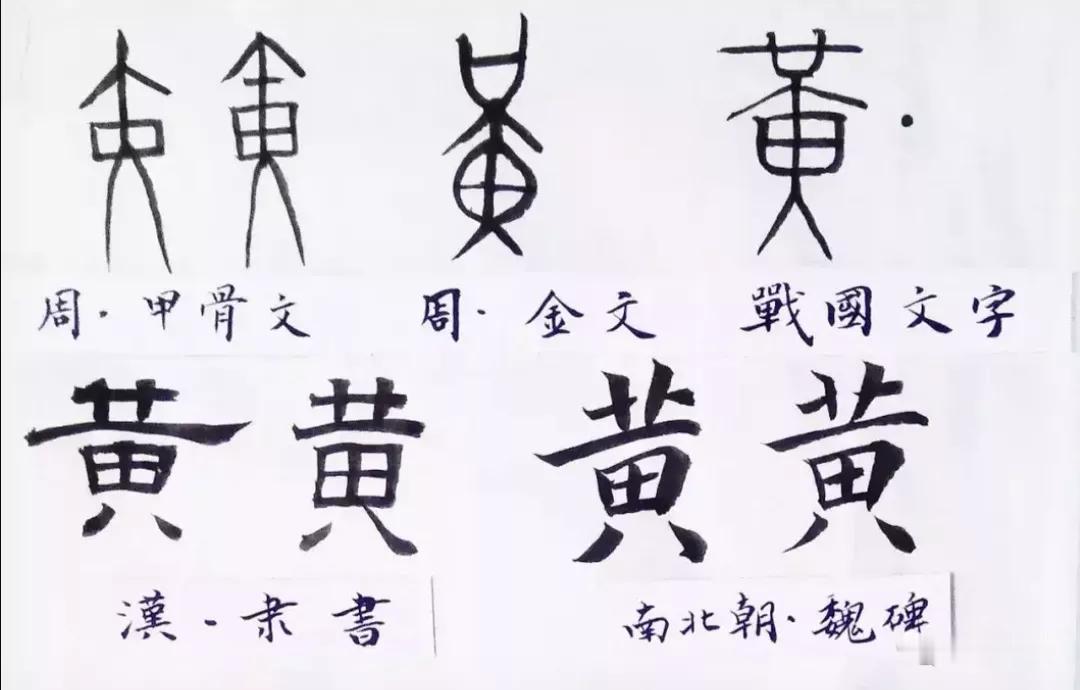 黄 黄 黄 黄
周·甲骨文 周·金文 戰國文字
黄 黄 黄 黄
漢·隶書 南北朝·魏碑